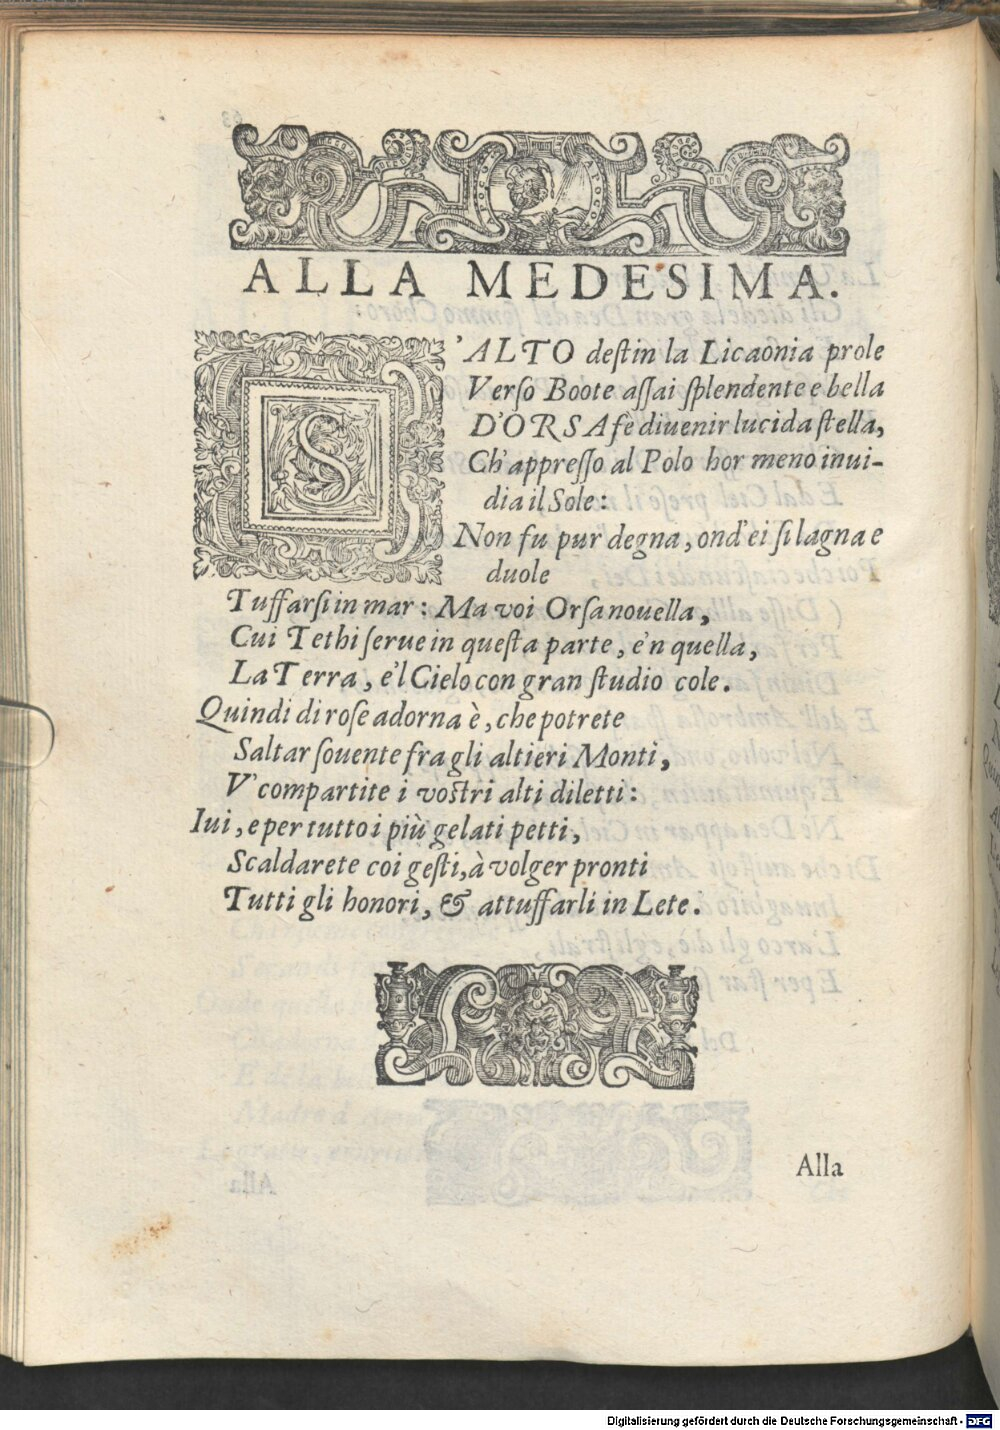 ALLA MEDESIMA.
S'ALTO destin la Licaonia prole
Verſo Boote aſſai ſplendente e bella
D'ORSA fe diuenir lucida ſtella,
Ch'appreſſo al Polo hor meno inui-
dia il Sole:
Non fu pur degna, ond'ei ſi lagna e
duole
Tuffarſi in mar: Ma voi Orſa nouella,
Cui Tethi ſerue in queſta parte, e'n quella,
La Terra, e'l Cielo con gran ſtudio cole.
Quindi di roſe adorna è, che potrete
Saltar ſouente fra gli altieri Monti,
V' compartite i voſtri alti diletti:
Iui, e per tutto i più gelati petti,
Scaldarete coi geſti, à volger pronti
Tutti gli honori, & attuffarli in Lete.
Alla
Digitalisierung gefördert durch die Deutsche Forschungsgemeinschaft - DFG